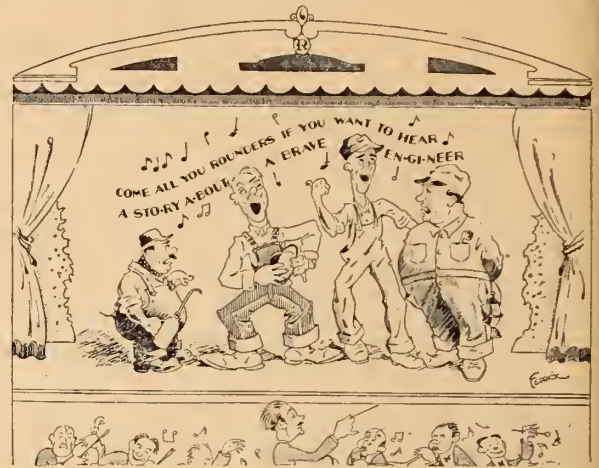 COME ALL YOU ROUNDERS IF YOU WANT TO HEAR
A STO-RY A-BOUT A BRAVE EN-GI-NEER